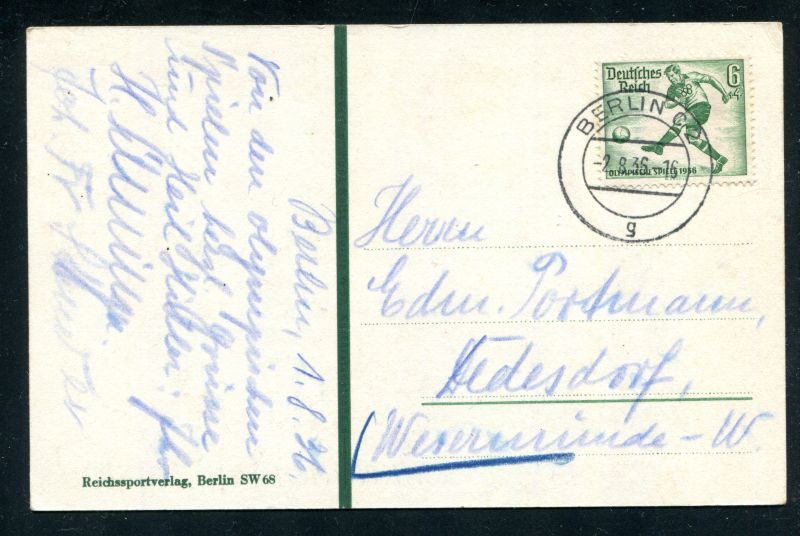 Berlin, 1.8.36.
Von den olympischen
Spielen herzl. Grüsse
und Heil Hitler! Ihr
H.
Reichssportverlag, Berlin SW 68
Deutsches
Reich
6
+4
OLYMPISCHE SPIELE 1936
BERLIN C2
-2.8.36.-16
g
Herrn
Edm. Portmann,
Wedesdorf,
Wesermünde-W.